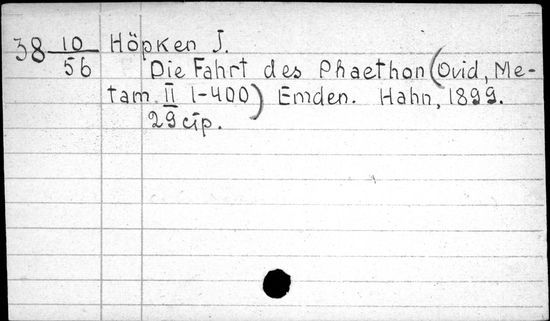 38 10/56 Höpken J.
Die Fahrt des Phaethon (Ovid, Me-
tam. II 1-400) Emden. Hahn, 1899.
29 стр.